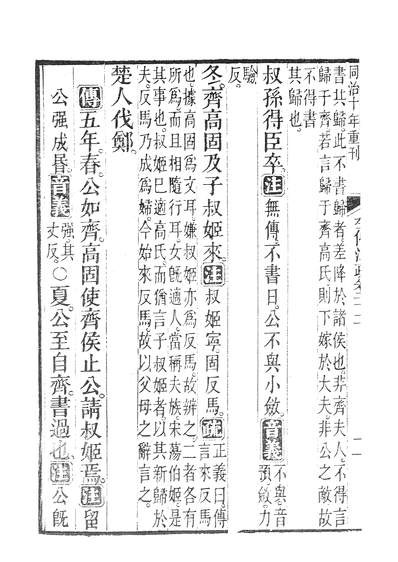 同治十年重刊
書其歸此不書歸者差降於諸侯也非齊夫人不得言
歸于齊若言歸于齊高氏則下嫁於大夫非公之敵故
不得書
其歸也
叔孫得臣卒。注無傳不書日公不與小斂。音義不與音
預斂力
驗
反。
冬齊高固及子叔姬來。注叔姬寧固反馬。疏正義曰傳
言來反馬
也據高固為文耳嫌叔姬亦為反馬故辨之二者各有
所為而且相隨行耳女既適人當稱夫族宋蕩伯姬是
其事也叔姬已適高氏而猶言子叔姬者以其新歸於
夫。反馬乃成為婦。今始來反馬。故以父母之辭言之。
楚人伐鄭。
傳五年。春。公如齊。高固使齊侯止公。請叔姬焉。注留
公強成昏。音義強其
丈反。○夏。公至自齊。書過也。注公既